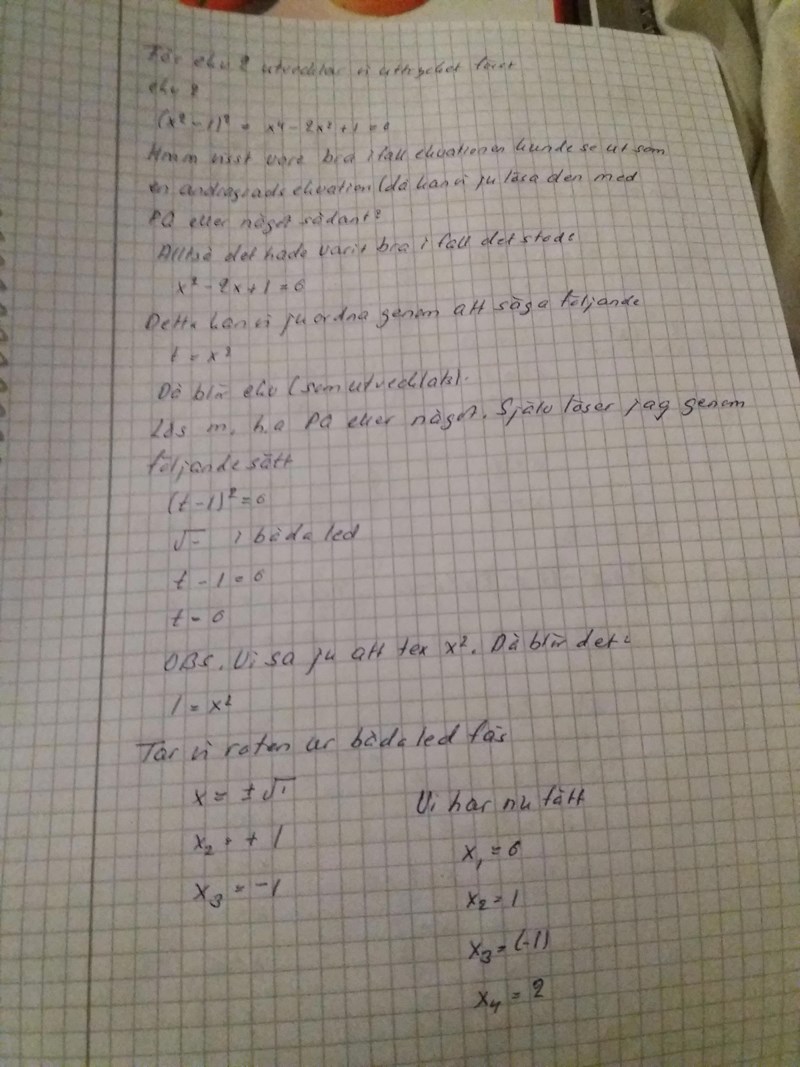 För ekv 2 utvecklar vi uttrycket först
ekv 2
(x²-1)² = x⁴-2x²+1=0
Hmm visst vore bra ifall ekvationen kunde se ut som
en andragrads ekvation (då kan vi ju lösa den med
PQ eller något sådant?
Alltså det hade varit bra i fall det stod:
x²-2x+1=0
Detta kan vi ju ordna genom att säga följande
t = x²
Då blir ekv (som utvecklats).
Lös m.h.a PQ eller något. Själv löser jag genom
följande sätt
(t-1)²=0
√ i båda led
t-1=0
t=0
OBS. Vi sa ju att t x². Då blir det:
1 = x²
Tar vi roten ur båda led fås
x = ±√1
x₂ = +1
x₃ = -1
Vi har nu fått
x₁ = 0
x₂ = 1
x₃ = (-1)
x₄ = 2